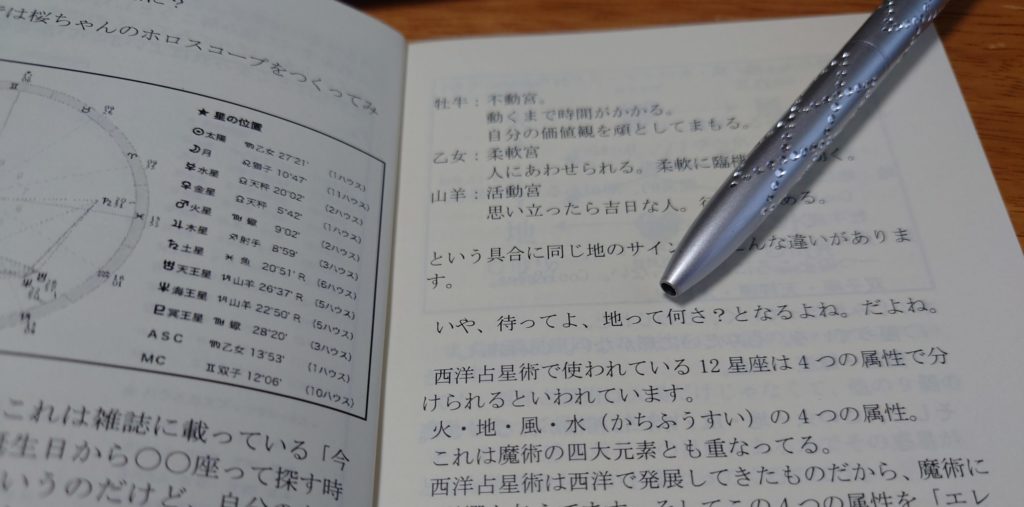 は桜ちゃんのホロスコープをつくってみ
★ 星の位置
☉太陽 ♍乙女 27°21' (1ハウス)
☽月 ♌獅子 10°47' (11ハウス)
☿水星 ♎天秤 20°02' (2ハウス)
♀金星 ♎天秤 5°42' (1ハウス)
♂火星 ♏蠍 9°02' (2ハウス)
♃木星 ♐射手 8°59' (3ハウス)
♄土星 ♓魚 20°51' R (6ハウス)
♅天王星 ♑山羊 26°37' R (5ハウス)
♆海王星 ♑山羊 22°50' R (5ハウス)
冥王星 ♏蠍 28°20' (3ハウス)
ASC ♍乙女 13°53' (1ハウス)
MC ♊双子 12°06' (10ハウス)
これは雑誌に載っている「今
生日から〇〇座って探す時
いうのだけど、自分の
牡牛：不動宮。
動くまで時間がかかる。
自分の価値観を頑としてまもる。
乙女：柔軟宮
人にあわせられる。柔軟に臨機
く。
山羊：活動宮
思い立ったら吉日な人。
ある。
という具合に同じ地のサイン
んな違いがありま
す。
いや、待ってよ、地って何さ？となるよね。だよね。
西洋占星術で使われている 12 星座は 4 つの属性で分
けられるといわれています。
火・地・風・水（かちふうすい）の 4 つの属性。
これは魔術の四大元素とも重なってる。
西洋占星術は西洋で発展してきたものだから、魔術に
そしてこの 4 つの属性を「エレ